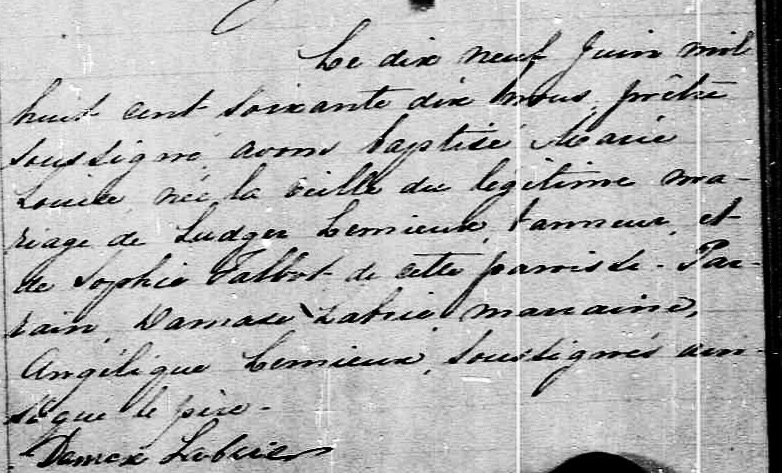 Le dix neuf Juin mil
huit cent soixante dix nous, prêtre
soussigné, avons baptisé Marie
Louise, née la veille du légitime ma-
riage de Ludger Lemieux, tanneur, et
de Sophie Talbot de cette paroisse. Par-
rain, Damase Labrie marraine,
Angélique Lemieux, soussignés ain-
si que le père.
Labrie